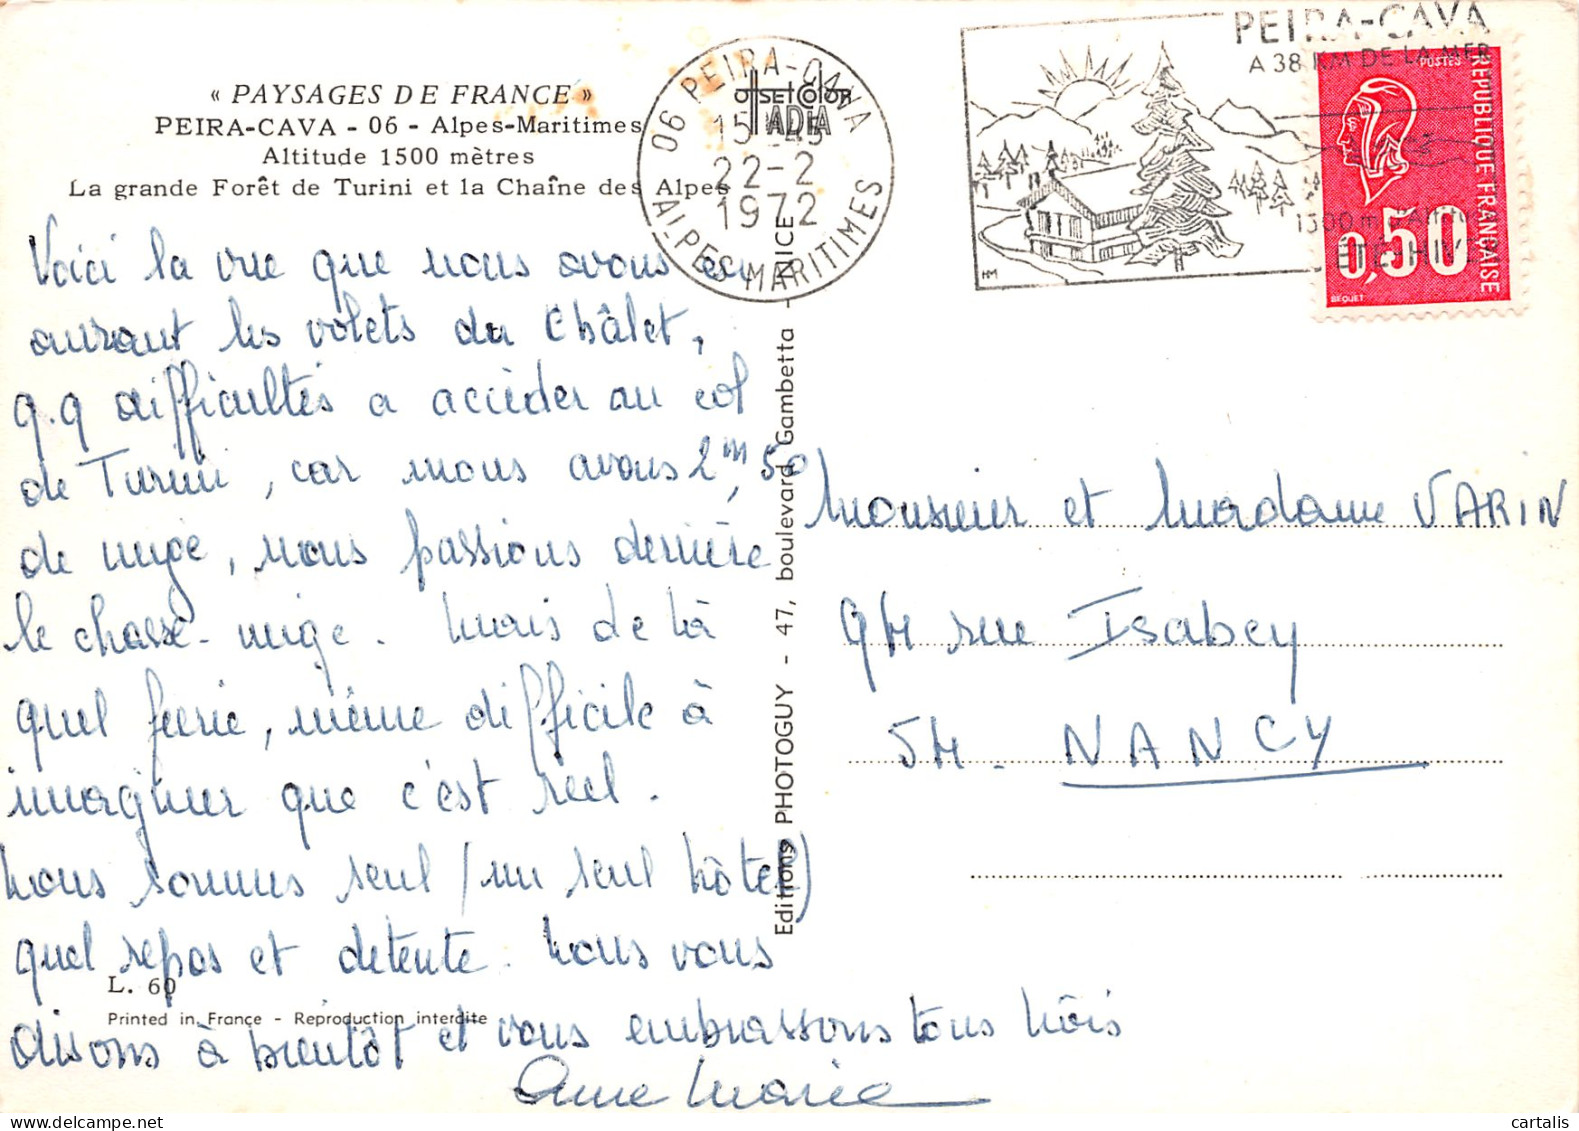 « PAYSAGES DE FRANCE »
PEIRA-CAVA - 06 - Alpes-Maritimes
Altitude 1500 mètres
La grande Forêt de Turini et la Chaîne des Alpes
Voici la vue que nous avons en
ouvrant les volets du Châlet,
q.q difficultés a accèder au col
de Turini, car nous avons 2m,50
de neige, nous passions derrière
le chasse-neige. Mais de là
quel feerie, même difficile à
imaginer que c'est réel.
Nous sommes seul (un seul hôtel)
quel repos et detente. Nous vous
disons à bientôt et vous embrassons tous trois
Anne Marie
L. 60
Printed in France - Reproduction interdite
Editions PHOTOGUY - 47, boulevard Gambetta - NICE
OFFSET COLOR
IADIA
06 PEIRA-CAVA
15H45
22-2
1972
ALPES MARITIMES
PEIRA-CAVA
A 38 KM DE LA MER
1500 m d'Altitude
ÉTÉ-HIVER
HM
POSTES
REPUBLIQUE FRANÇAISE
0,50
BEQUET
Monsieur et Madame VARIN
94 rue Isabey
54. NANCY
cartalis